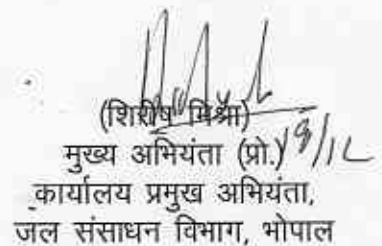 (शिरीष मिश्रा)
मुख्य अभियंता (प्रो.) 19/12
कार्यालय प्रमुख अभियंता,
जल संसाधन विभाग, भोपाल